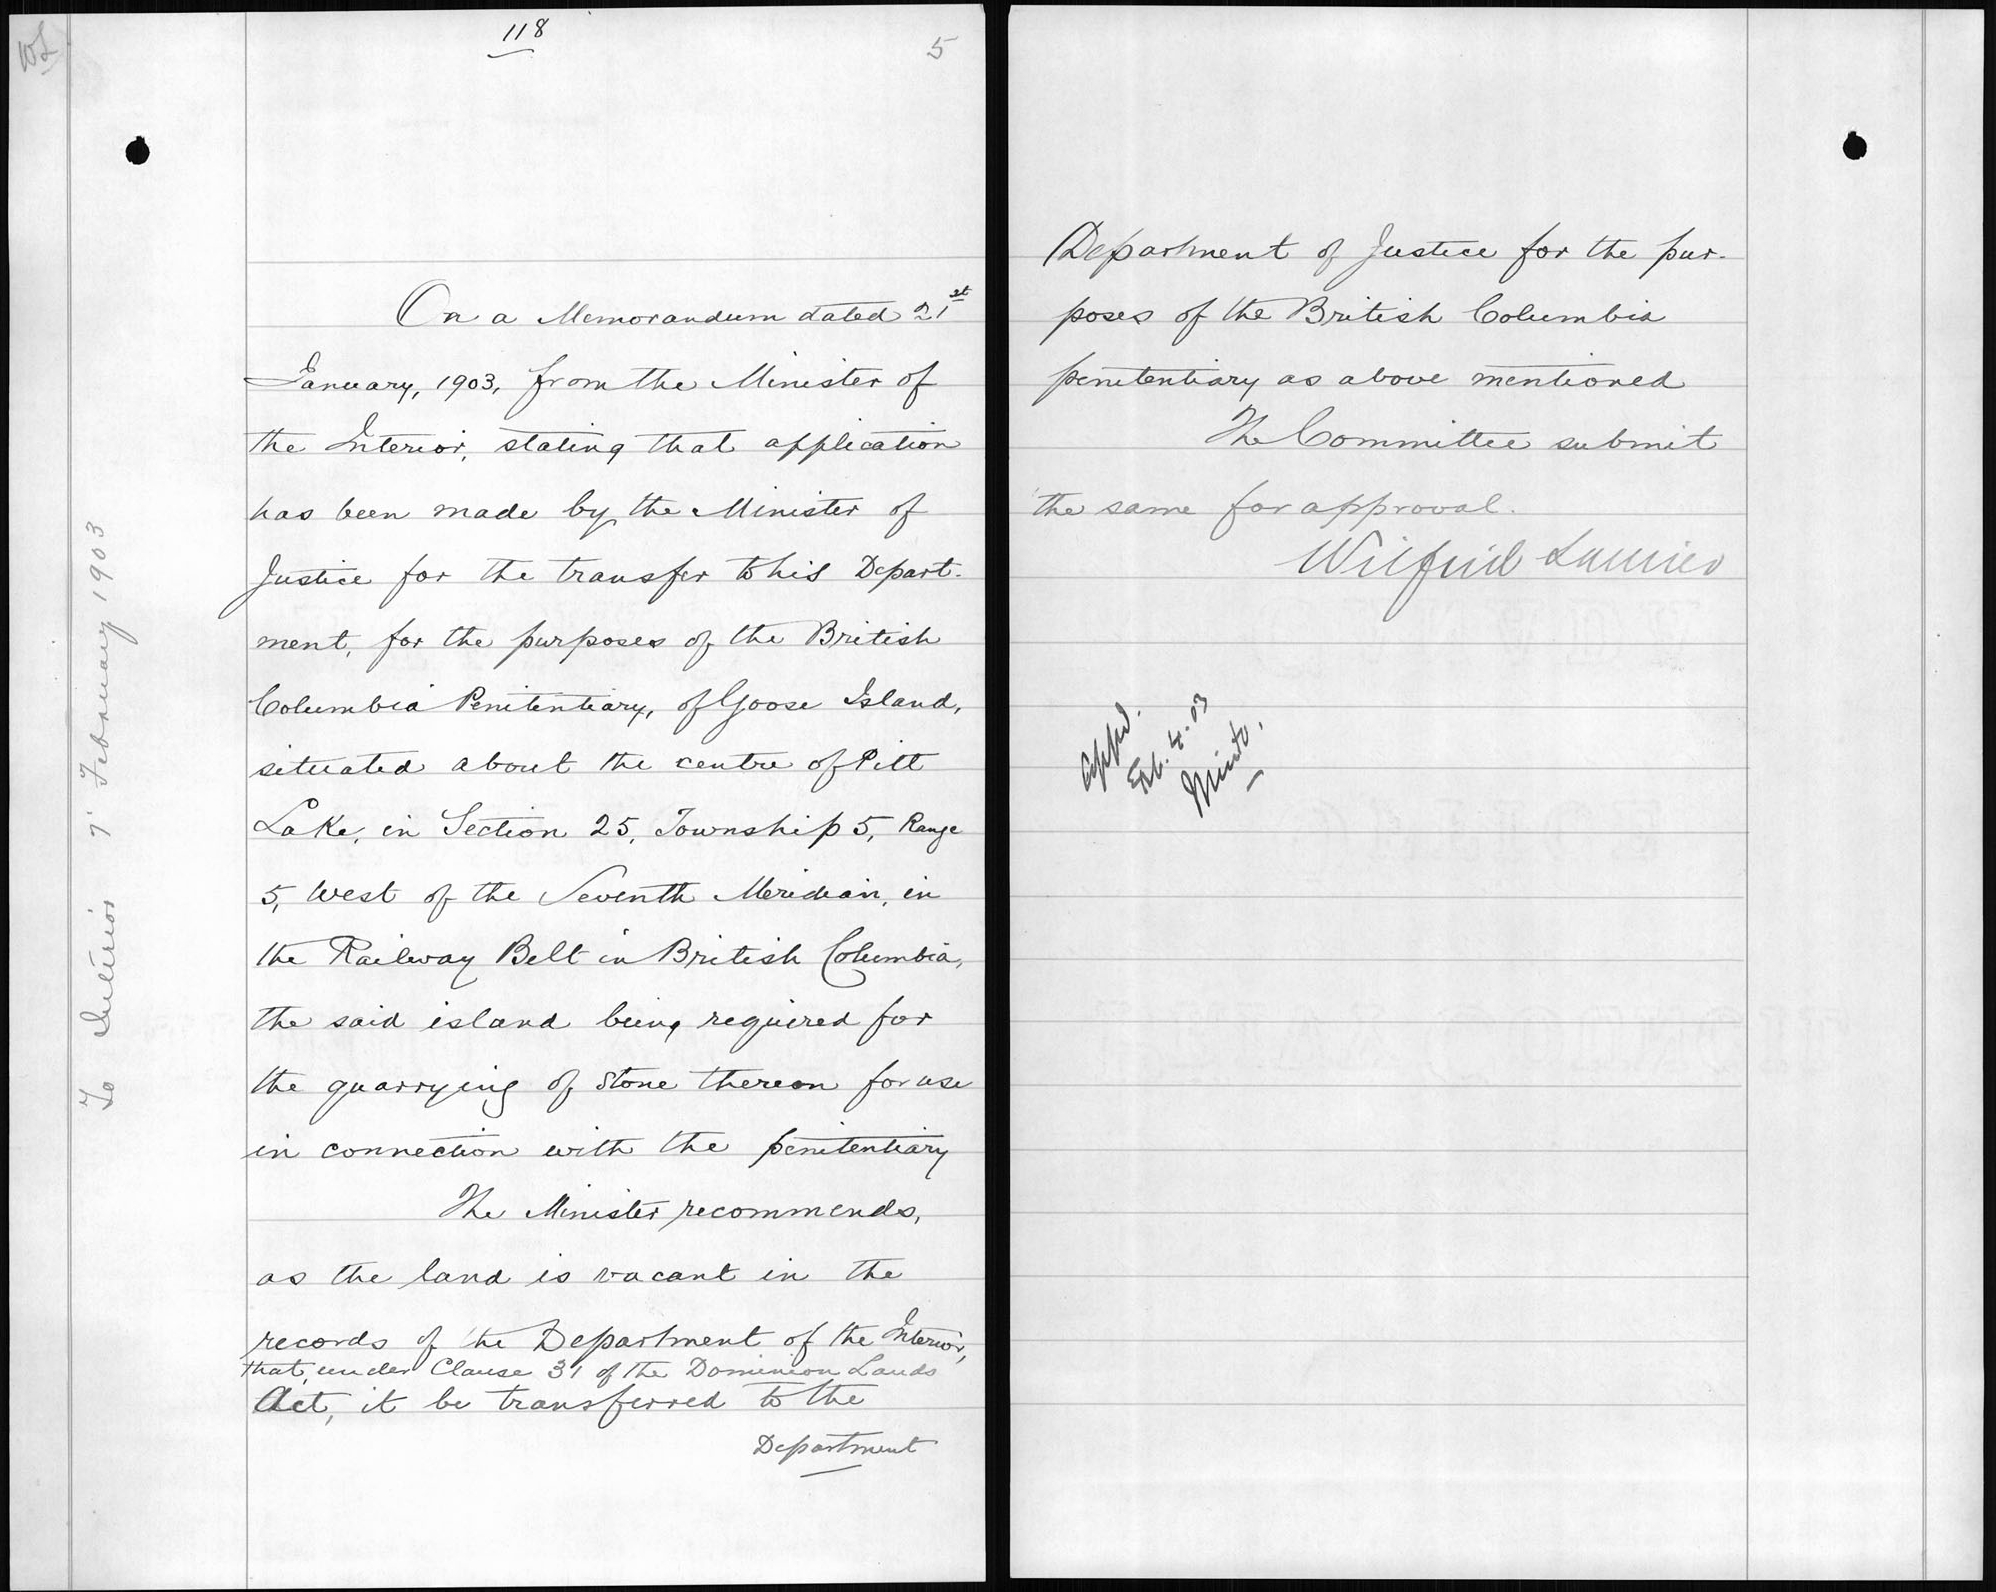 118
5
WL
On a Memorandum dated 21st
January, 1903, from the Minister of
the Interior, stating that application
has been made by the Minister of
Justice for the transfer to his Depart-
ment, for the purposes of the British
Columbia Penitentiary, of Goose Island,
situated about the centre of Pitt
Lake, in Section 25, Township 5, Range
5, West of the Seventh Meridian, in
the Railway Belt in British Columbia,
the said island being required for
the quarrying of stone thereon for use
in connection with the penitentiary
The Minister recommends,
as the land is vacant in the
records of the Department of the Interior,
that, under Clause 31 of the Dominion Lands
Act, it be transferred to the
Department
To Interior 7' February 1903
Department of Justice for the pur-
poses of the British Columbia
penitentiary as above mentioned
The Committee submit
the same for approval.
Wilfrid Laurier
Appd.
Feb. 4. 03
Minto.